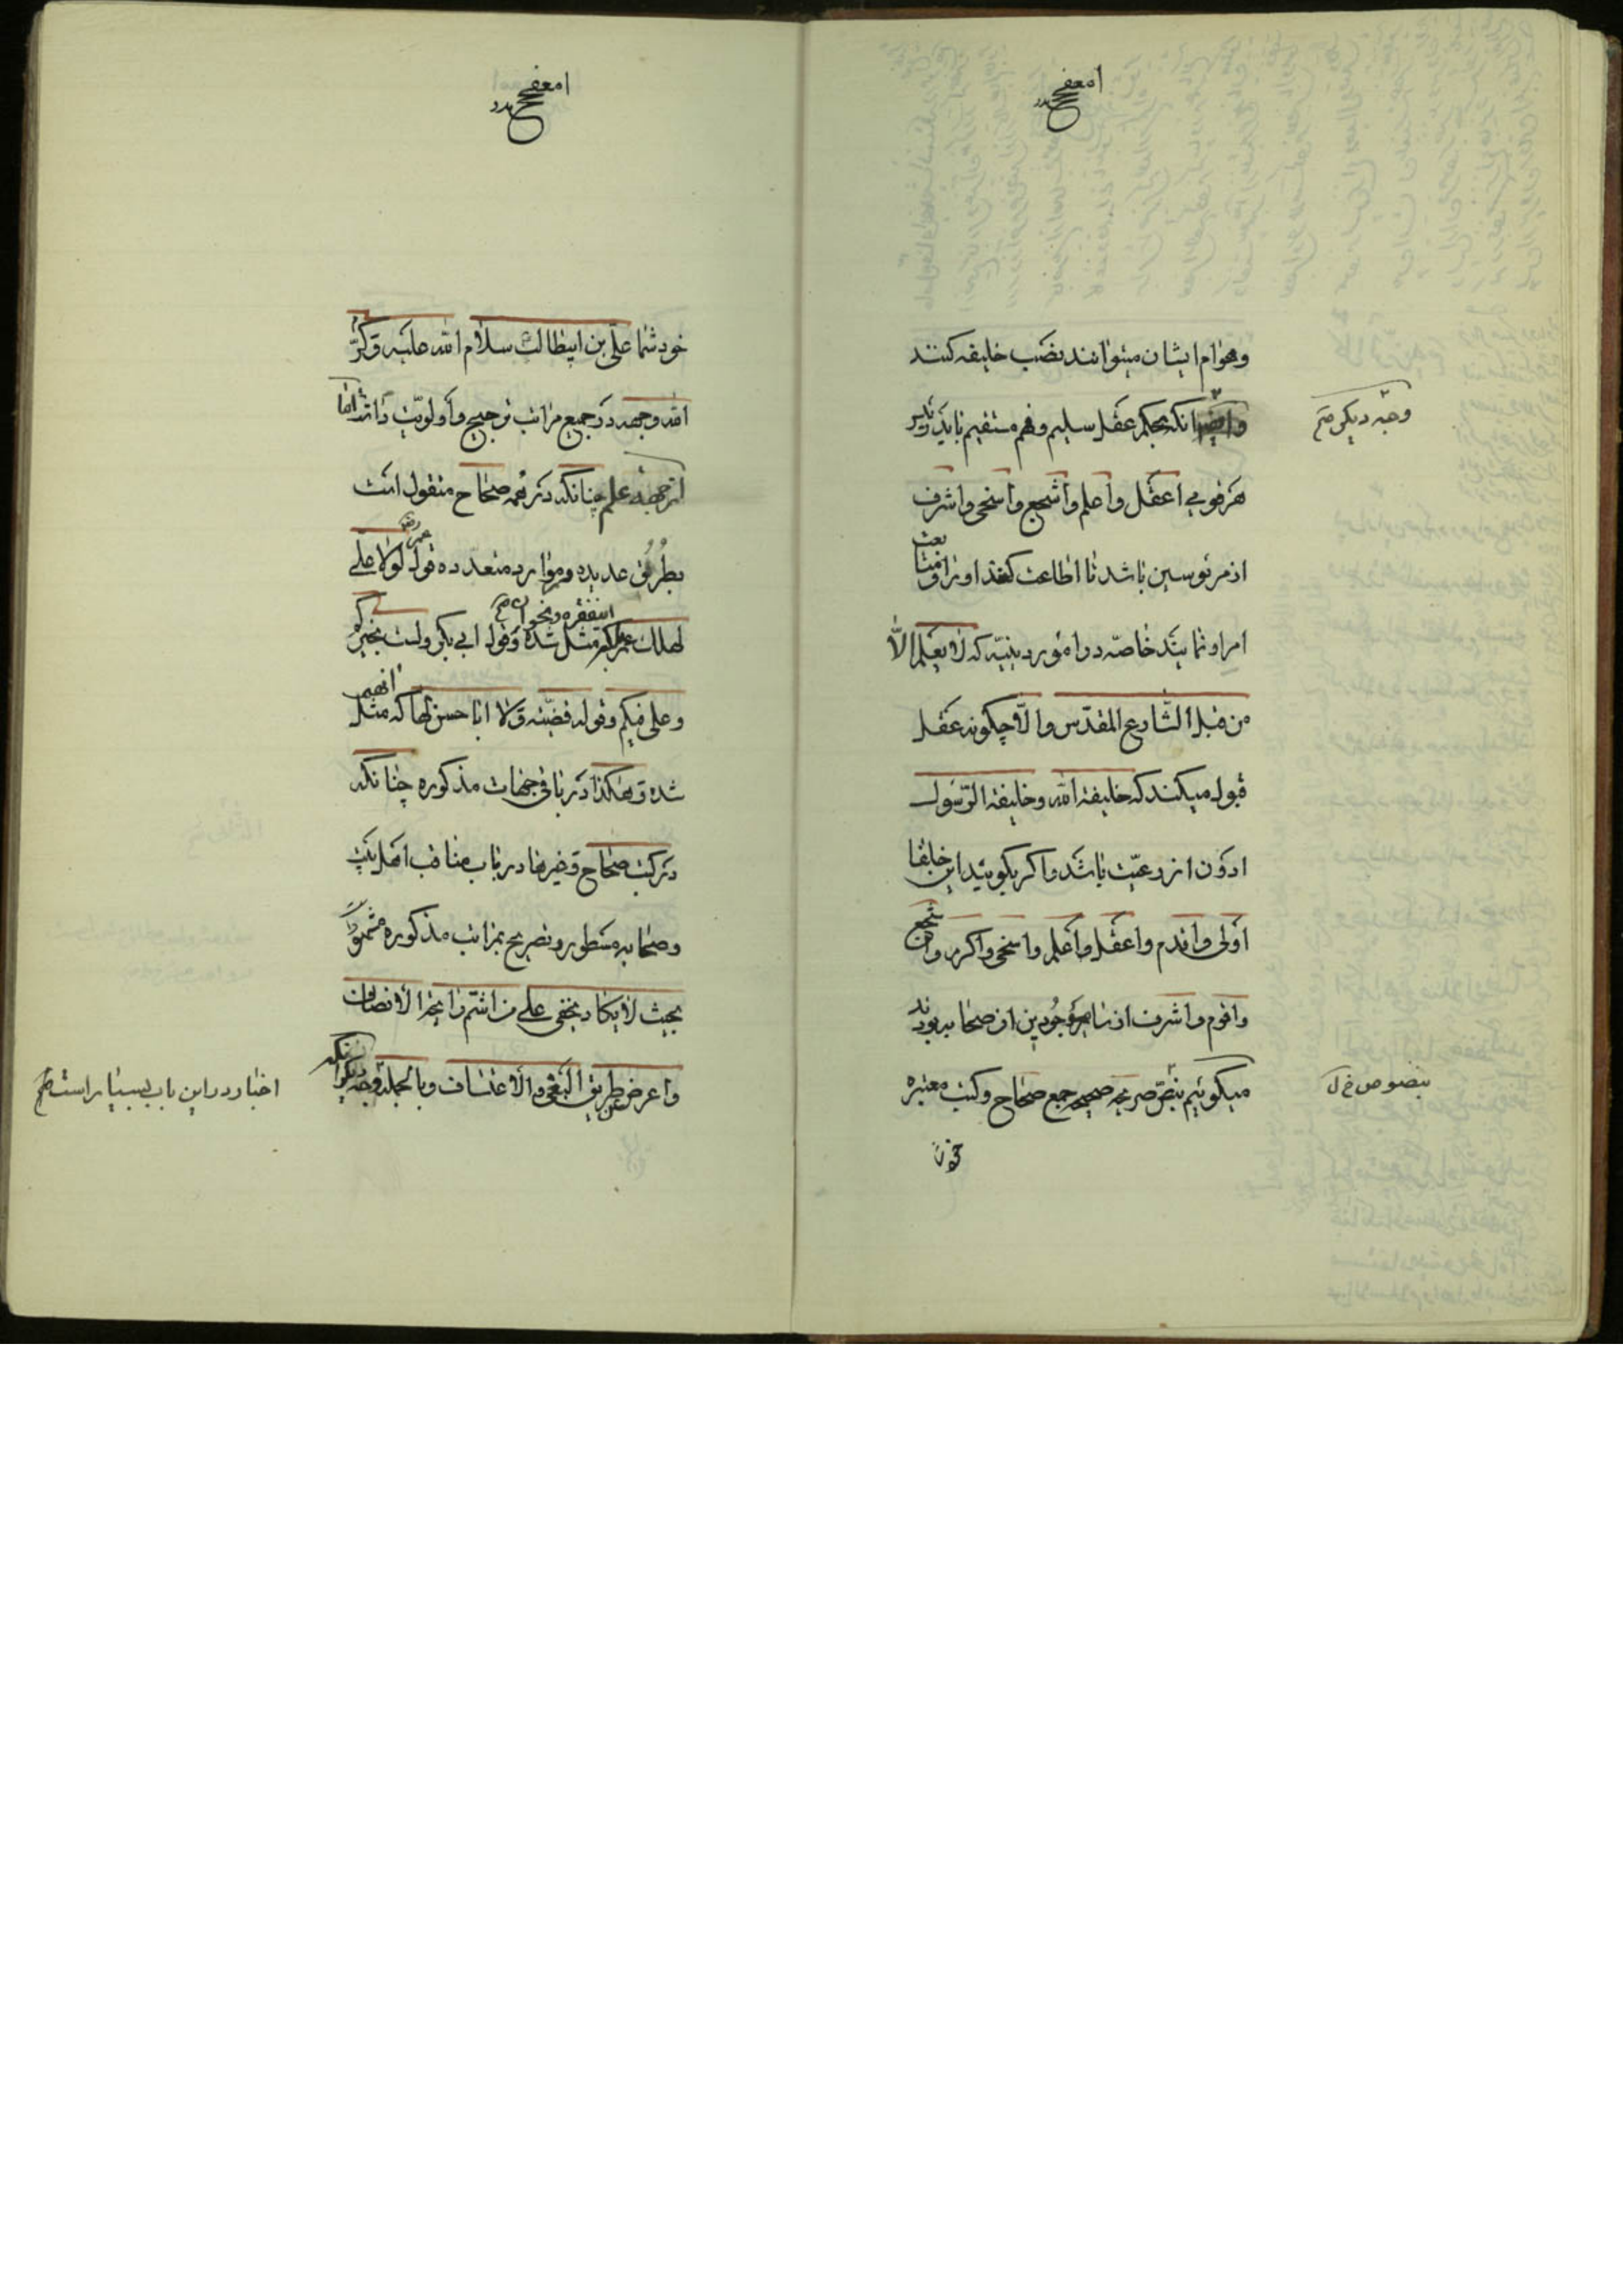 وعوام ایشان میتوانند نصب خلیفه کنند
انکه بحکم عقل سلیم وفهم مستقیم باید رئیس
وجه دیگر صح
هر قومی اعقل واعلم واشجع واسخی واشرف
از مرئوسین باشد تا اطاعت کنند او را ومتابعت
امر او نمایند خاصه در امور دینیه که لا یعلم الا
من قبل الشارع المقدس والا چگونه عقل
قبول میکند که خلیفة الله وخلیفة الرسول
ادون از رعیت باشد واگر بگویید این خلفا
اولی واقدم واعقل واعلم واسخی واکرم واشجع
واقوم واشرف از سایر موجودین از صحابه بودند
میگوئیم بنص صریح صحیح جمع صحاح وکتب معتبره
بنصوص خ ل
خود
خود شما علی بن ابیطالب سلام الله علیه وکرم
الله وجهه در جمیع مراتب ترجیح واولویت داشته اما
از جهة علم چنانکه در همه صحاح منقول است
بطرق عدیده وموارد متعدده قول عمر لولا علی
لهلک عمر که مثل شده وقول ابی بکر ولست بخیرکم
اینفقره ونحو آن صح
وعلی فیکم وقولهم قضیة ولا ابا حسن لها که مثل
شده وهکذا در باقی جهات مذکوره چنانکه
در کتب صحاح وغیرها در باب مناقب اهل بیت
وصحابه مسطور وتصریح بمراتب مذکوره مشحون
بحیث لا یکاد یخفی علی من اشتم رایحة الانصاف
واعرض عن طریق البغی والاعتساف وبالجمله وجه دیگر آنکه
اخبار در این باب بسیار است صح